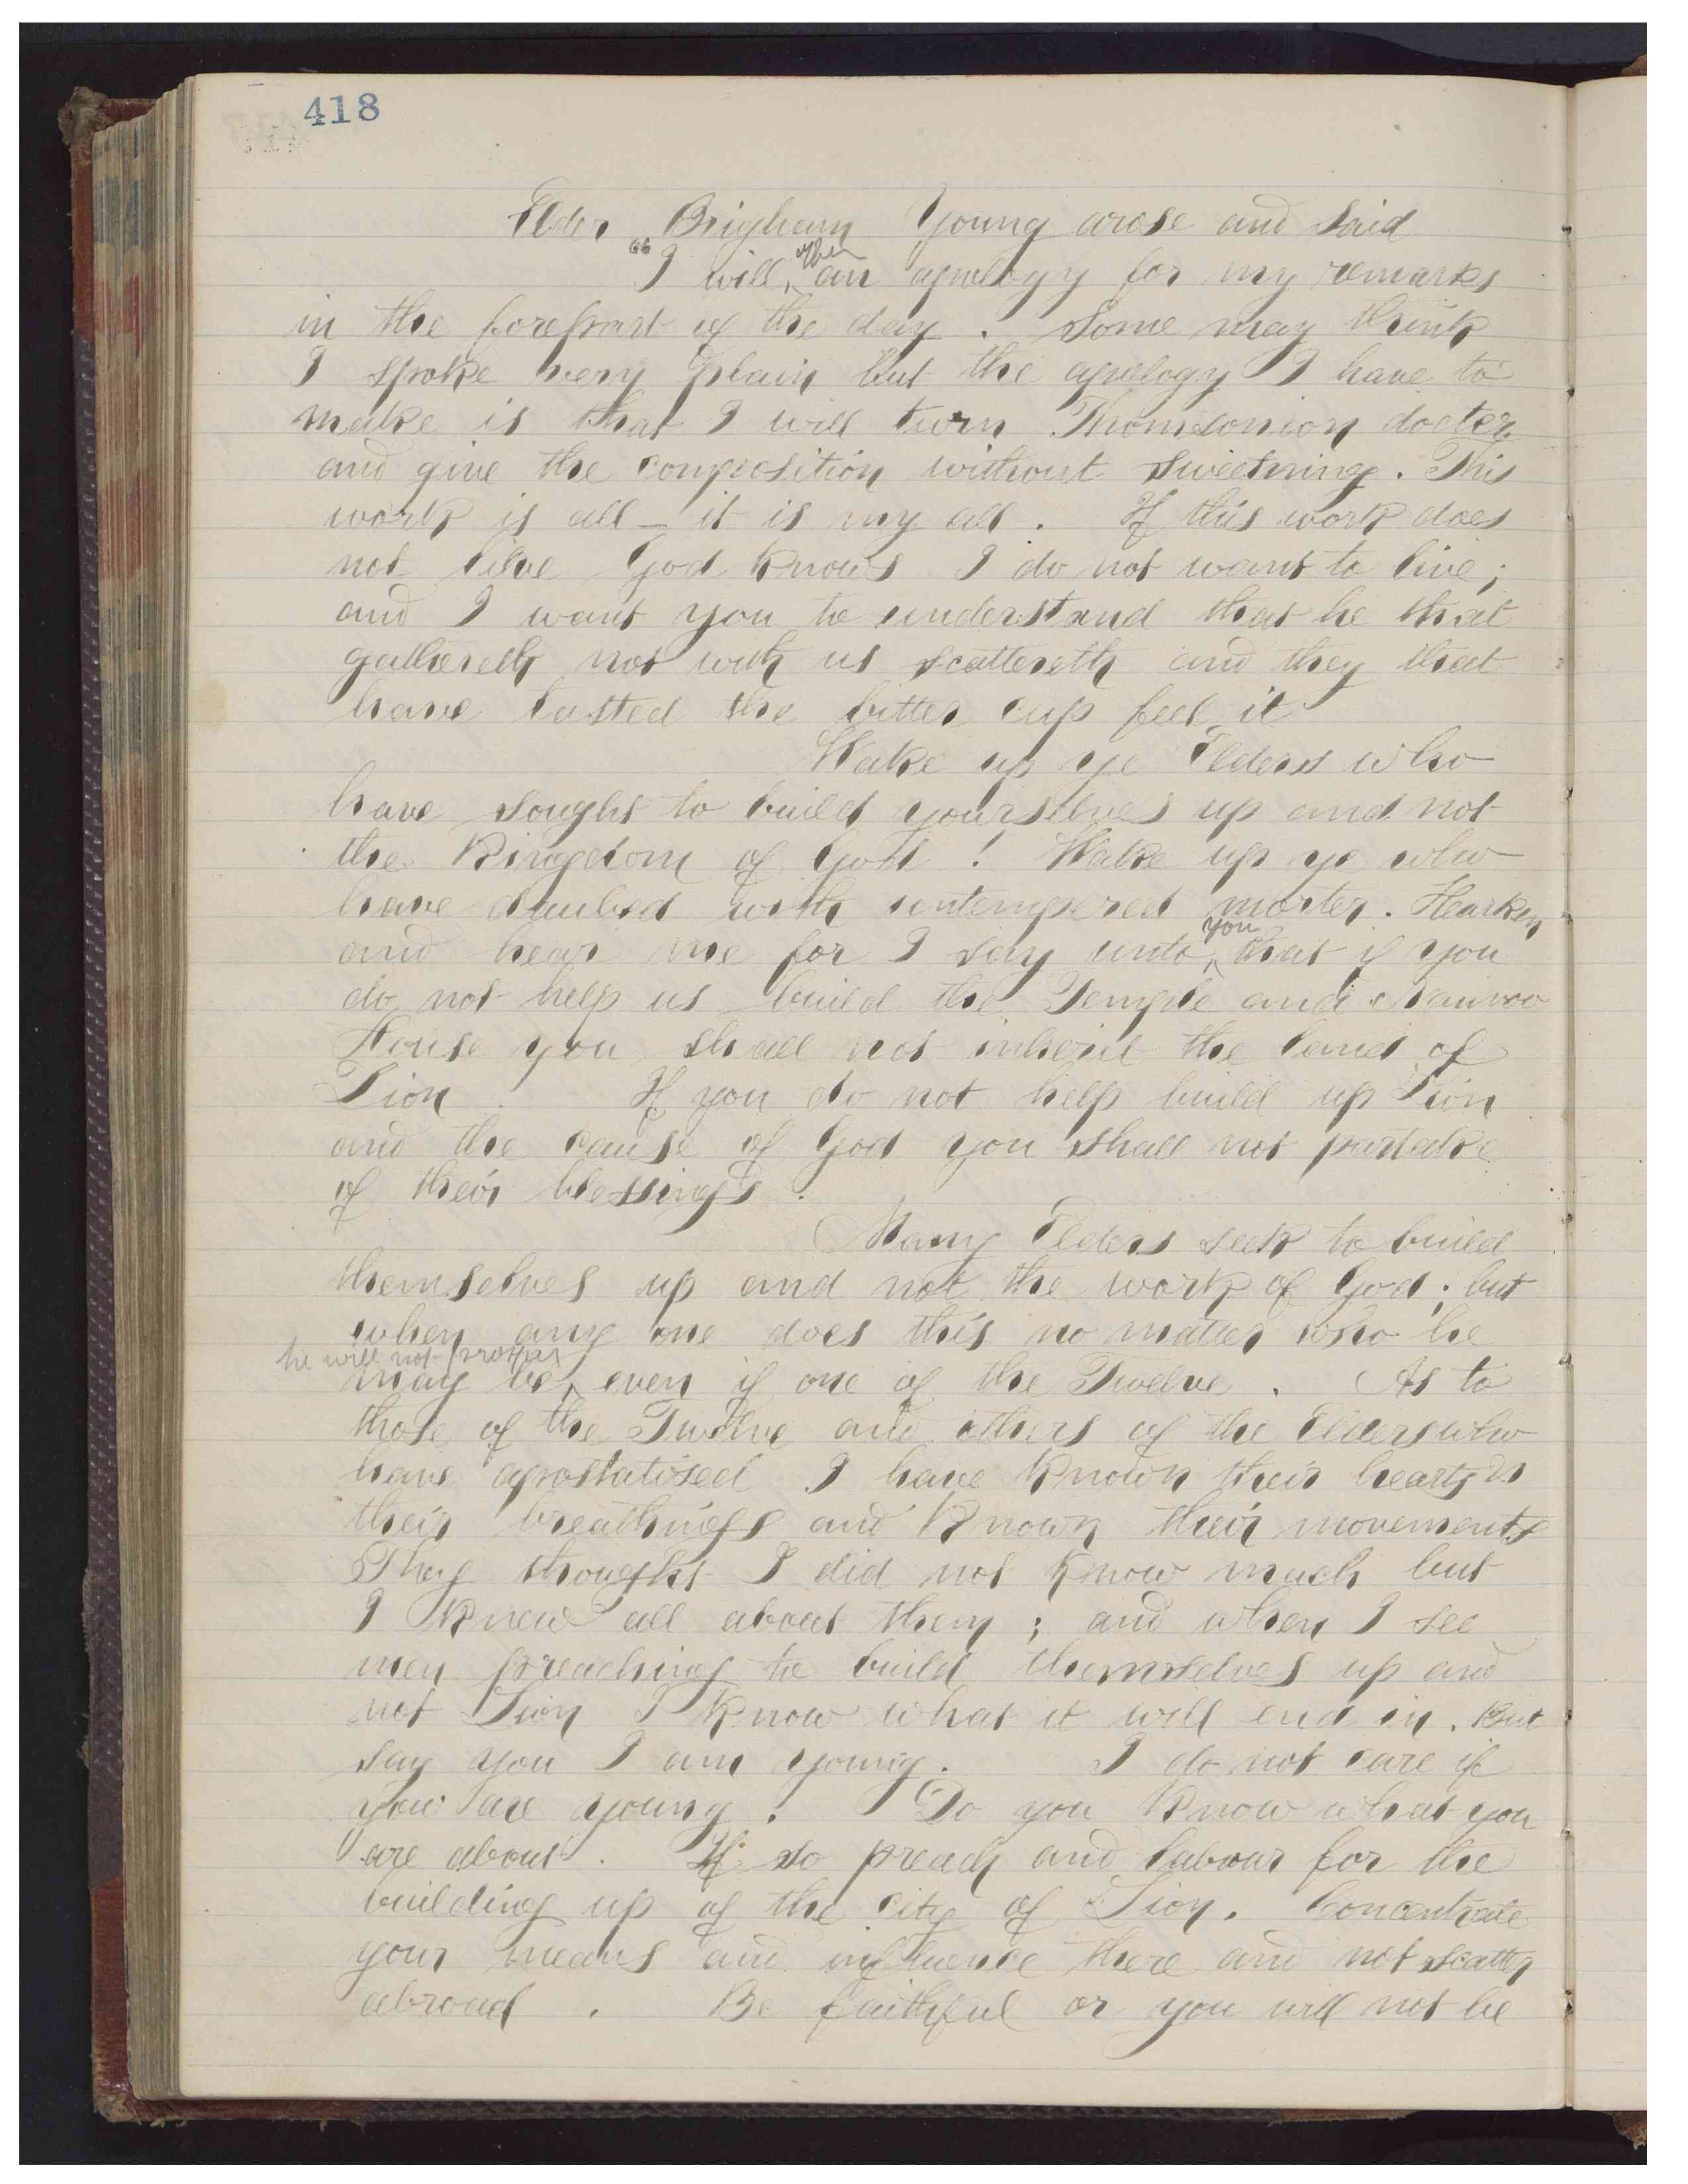 418
Elder Brigham Young arose and said
"I will ^offer an apology for my remarks
in the forepart of the day. Some may think
I spoke very plain but the apology I have to
make is that I will turn Thomsonion docter
and give the composition without sweetning. This
work is all – it is my all. If this work does
not live God knows I do not want to live;
and I want you to understand that he that
gathereth not with us scattereth and they that
have tasted the bitter cup feel it
Wake up ye Elders who
have sought to build yourselves up and not
the Kingdom of God! Wake up ye who
have daubed with untempered morter. Hearken
and hear me for I say unto ^you that if you
do not help us build the Temple and Nauvoo
House you shall not inherit the land of
Zion. If you do not help build up Zion
and the cause of God you shall not partake
of their blessings.
Many Elders seek to build
themselves up and not the work of God; but
when any one does this no matter who he
may be, ^he will not prosper even if one of the Twelve. As to
those of the Twelve and others of the Elders who
have apostatised I have known their hearts &
their breathings and known their movements
They thought I did not know much but
I knew all about them; and when I see
men preaching to build themselves up and
not Zion I know what it will end in. But
say you I am young. I do not care if
you are young. Do you know what you
are about. If so preach and labour for the
building up of the city of Zion. Concentrate
your means and influence there and not scatter
abroad. Be faithful or you will not be